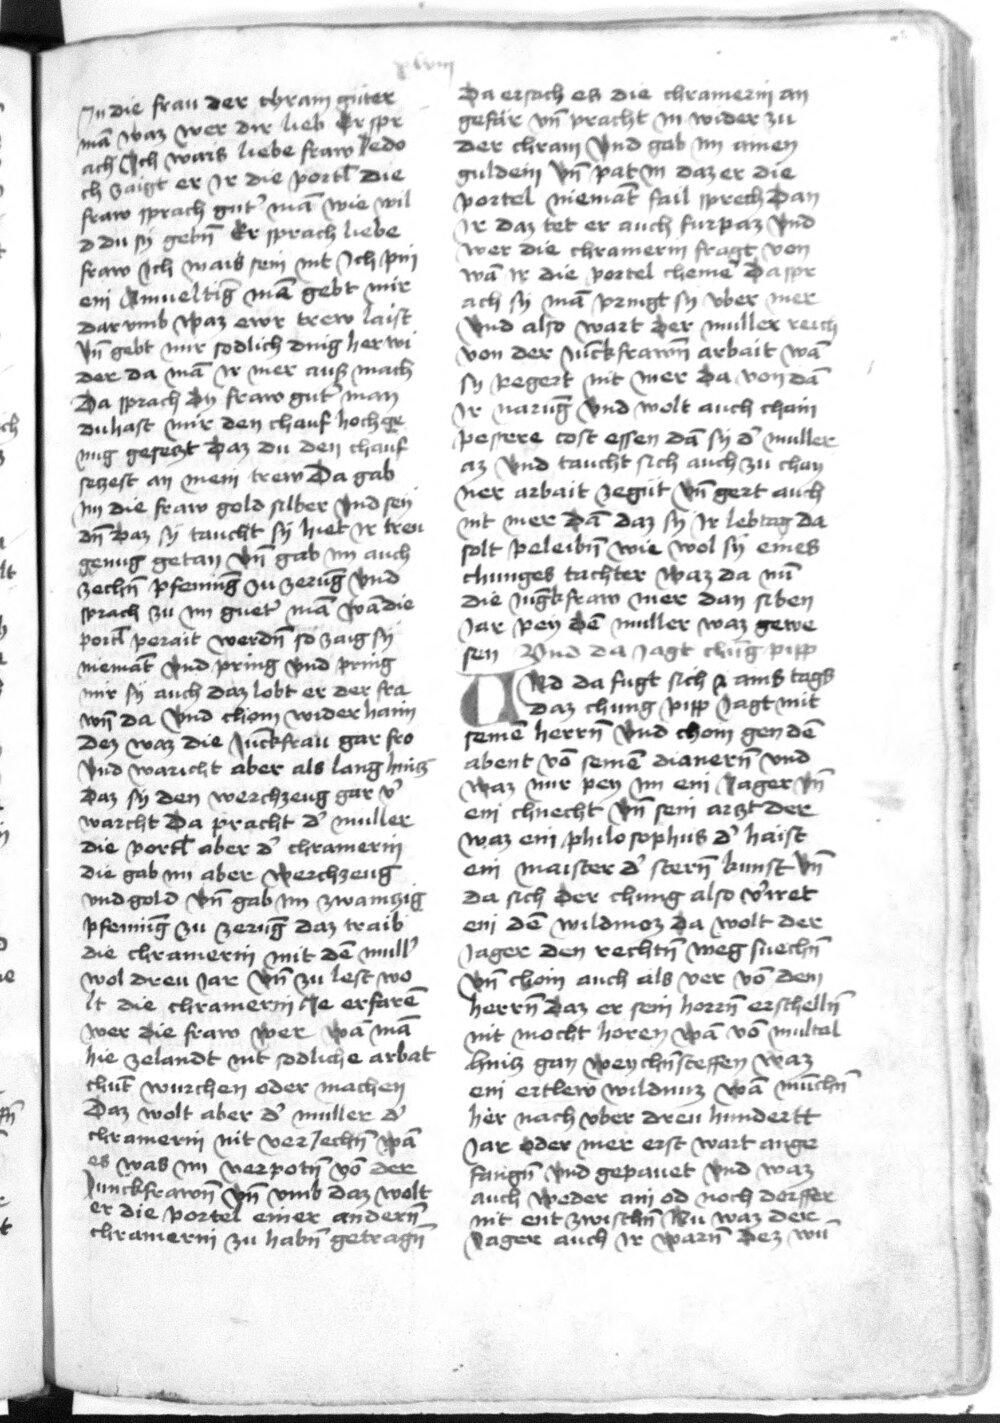 xlviii
In die frau der chram guter
mā waz wer dir lieb Er spr
ach Ich wais liebe fraw Jedo
ch zaigt er Ir die portl̄ die
fraw sprach gut' mā wie wil
d du sy gebn̄ Er sprach liebe
fraw Ich wais sein nit Ich pin
ein Ainueltig' mā gebt mir
dar vmb waz ewr trew laist
vn̄ gebt mir sodlich ding her wi
der da mā Ir mer ausz mach
Da sprach dy fraw gut' man
du hast mir den chauf hoch ge
nug gesetzt Daz du den chauf
setzest an mein trew Da gab
im die fraw gold silber vnd sey
dn̄ Daz sy taucht sy hiet Ir treu
genug getan vn̄ gab im auch
zechn̄ pfenniḡ zu zerūg vnd
sprach zu im guet' mā wā die
portl̄ perait werdn̄ so zaig sy
niemāt vnd pring vnd pring
mir sy auch daz lobt er der fra
wn̄ da vnd chom wider haim
dez waz die Jūckfrau gar fro
vnd waricht aber als lang hintz
Daz sy den werchzeug gar v'
warcht Da pracht d' muller
die portl̄ aber d' chramerin
die gab im aber werchzeug
vnd gold vn̄ gab im zwaintzig
pfennīg zu zerūg daz traib
die chramerin mit dē mull'
wol dreu Jar vn̄ zu lest wo
lt die chramerin Je erfarē
wer die fraw wer wā mā
hie zelandt nit sodliche arbat
chūt wurchen oder machen
Daz wolt aber d' muller d'
chramerin nit ver Jechn̄ wā
es was im verpotn̄ vō der
Junckfrawn̄ vn̄ vmb daz wolt
er die portel einer andern̄
chramerin zu habn̄ getragn̄
Da ersach es die chramerin an
gefär vn̄ pracht in wider zu
der chram vnd gab im ainen
guldein vn̄ pat in daz er die
portel niemāt fail sprech Dan
Ir daz tet er auch furpaz vnd
wer die chramerin fragt von
wā Ir die portel chemē Da spr
ach sy mā pringt sy vber mer
vnd also wart der muller reich
von der Jūckfrawn̄ arbait wā
sy pegert nit mer Da von dā
Ir narūg vnd wolt auch chain
pessere cost essen dā sy d' muller
az vnd taucht sich auch zu chay
ner arbait zegut vn̄ gert auch
nit mer dā daz sy Ir lebtag da
solt peleibn̄ wie wol sy eines
chunges tachter waz da nū
die Jūgkfraw mer dan siben
Jar pey dē muller waz gewe
sen Vnd da Jagt chūg pipp
Vnd da fugt sich ains tags
daz chung pipp Jagt mit
seinē herrn̄ vnd chom gen dē
abent vō seinē dianern̄ vnd
waz nur pey im ein Jager vn̄
ein chnecht vn̄ sein artzt der
waz ein philosophus d' haist
ein maister d' stern̄ kunst vn̄
da sich der chung also v'irret
ein dē wildmoz da wolt der
Jager den rechtn̄ weg suechn̄
vn̄ chom auch als ver vō dem
herrn̄ daz er sein horrn̄ erschelln̄
nit mocht horen wā vō multal
hintz gan weychn̄steffen waz
ein ertlew wildnuz wā mūchn̄
her nach vber dreu hundertt
Jar oder mer erst wart ange
fangn̄ vnd gepauet vnd waz
auch weder ain od noch dorffer
nit ent zwischn̄ Nu waz der
Jager auch Ir warn̄ dez wū